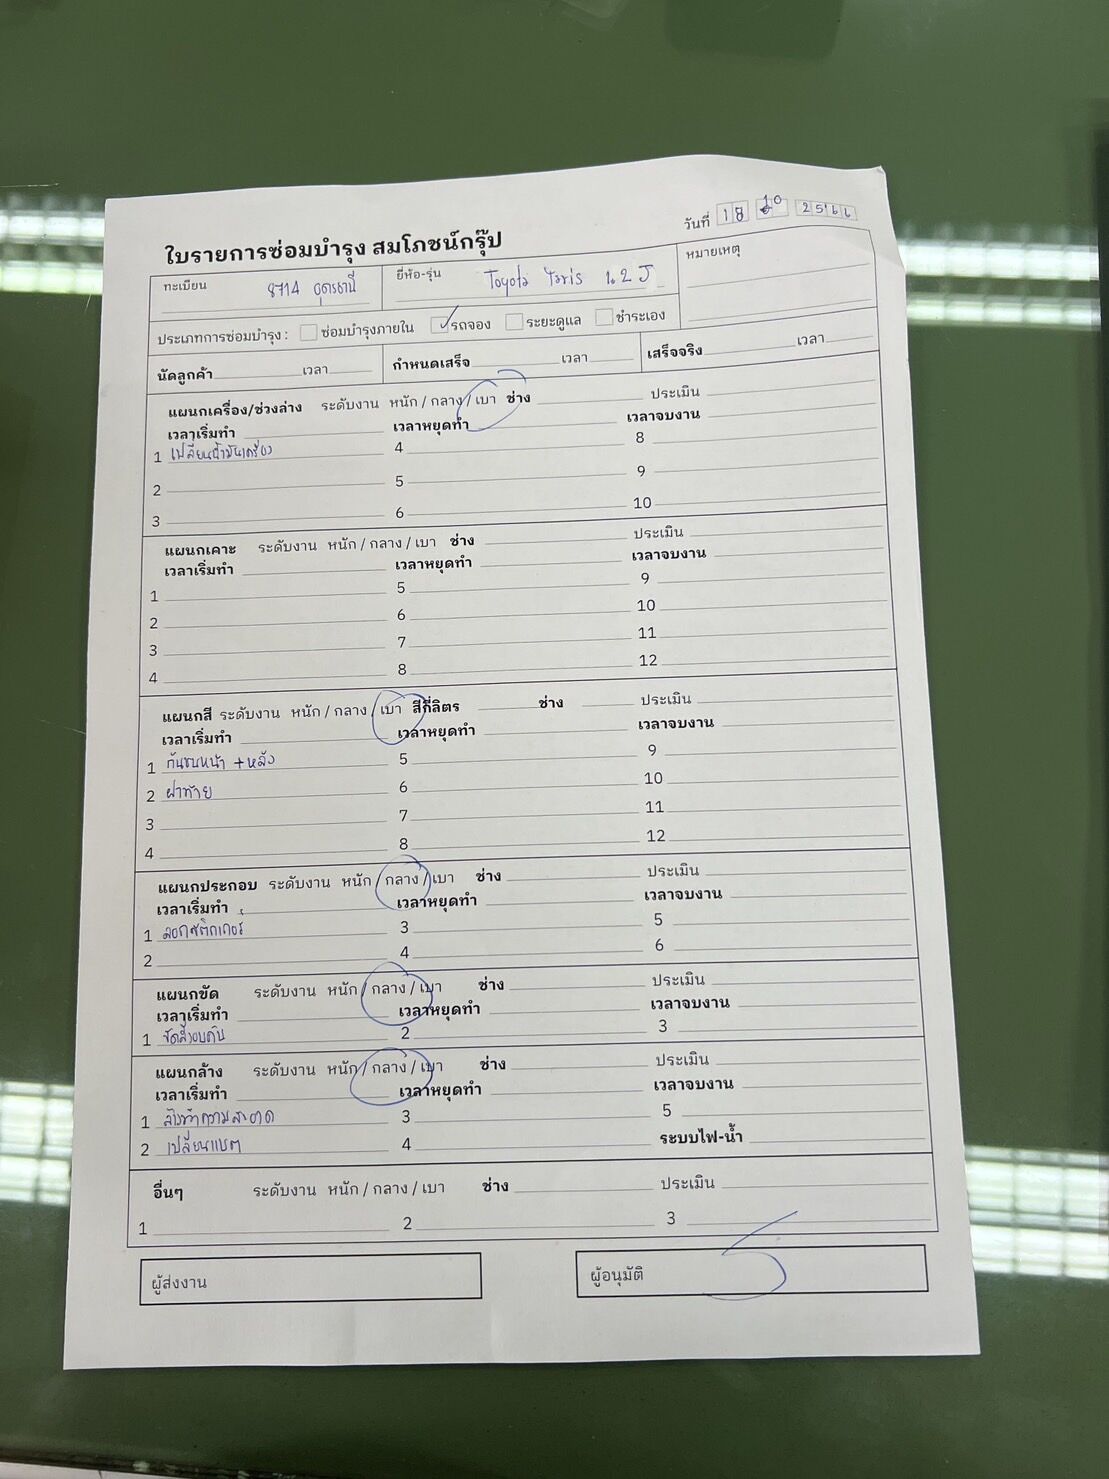 วันที่ 18 10 2566
ใบรายการซ่อมบำรุง สมโภชน์กรุ๊ป
ทะเบียน 8714 อุดรธานี ยี่ห้อ-รุ่น Toyota Yaris 1.2 J หมายเหตุ
ประเภทการซ่อมบำรุง : ซ่อมบำรุงภายใน ✓ รถจอง ระยะดูแล ชำระเอง
นัดลูกค้า เวลา กำหนดเสร็จ เวลา เสร็จจริง เวลา
แผนกเครื่อง/ช่วงล่าง ระดับงาน หนัก / กลาง / เบา ช่าง ประเมิน
เวลาเริ่มทำ เวลาหยุดทำ เวลาจบงาน
1 เปลี่ยนน้ำมันเครื่อง 4 8
2 5 9
3 6 10
แผนกเคาะ ระดับงาน หนัก / กลาง / เบา ช่าง ประเมิน
เวลาเริ่มทำ เวลาหยุดทำ เวลาจบงาน
1 5 9
2 6 10
3 7 11
4 8 12
แผนกสี ระดับงาน หนัก / กลาง / เบา สีกี่ลิตร ช่าง ประเมิน
เวลาเริ่มทำ เวลาหยุดทำ เวลาจบงาน
1 กันชนหน้า + หลัง 5 9
2 ฝาท้าย 6 10
3 7 11
4 8 12
แผนกประกอบ ระดับงาน หนัก / กลาง / เบา ช่าง ประเมิน
เวลาเริ่มทำ เวลาหยุดทำ เวลาจบงาน
1 ลอกสติกเกอร์ 3 5
2 4 6
แผนกขัด ระดับงาน หนัก / กลาง / เบา ช่าง ประเมิน
เวลาเริ่มทำ เวลาหยุดทำ เวลาจบงาน
1 ขัดสีรอบคัน 2 3
แผนกล้าง ระดับงาน หนัก / กลาง / เบา ช่าง ประเมิน
เวลาเริ่มทำ เวลาหยุดทำ เวลาจบงาน
1 ล้างทำความสะอาด 3 5
2 เปลี่ยนแบต 4 ระบบไฟ-น้ำ
อื่นๆ ระดับงาน หนัก / กลาง / เบา ช่าง ประเมิน
1 2 3
ผู้ส่งงาน ผู้อนุมัติ